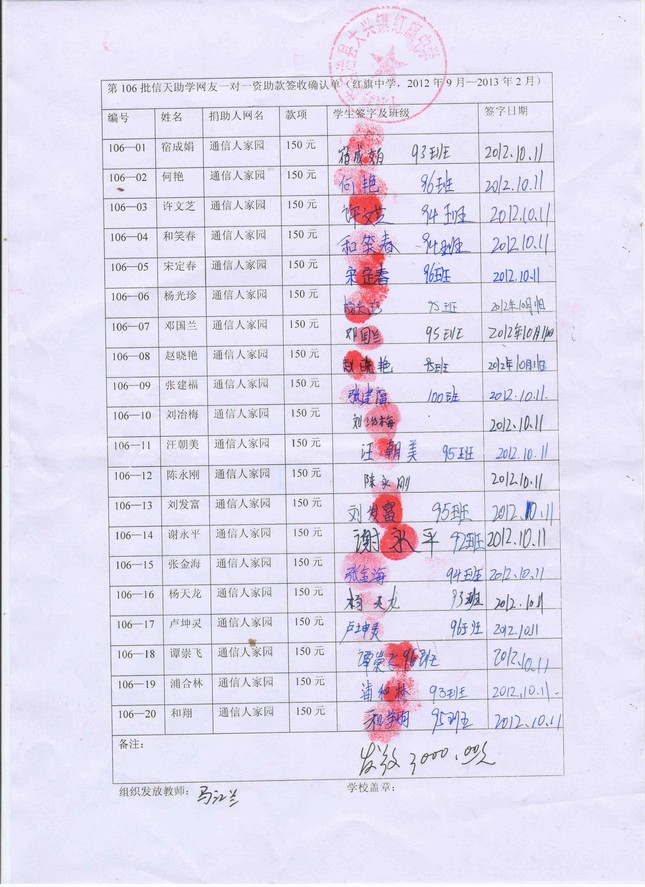 治县大兴镇红旗中学
第 106 批信天助学网友一对一资助款签收确认单（红旗中学，2012 年 9 月—2013 年 2 月）
编号 姓名 捐助人网名 款项 学生签字及班级 签字日期
106—01 宿成娟 通信人家园 150 元 宿成娟 93班 2012.10.11
106—02 何艳 通信人家园 150 元 何艳 96班 2012.10.11
106—03 许文芝 通信人家园 150 元 许文芝 94班 2012.10.11
106—04 和笑春 通信人家园 150 元 和笑春 94班 2012.10.11
106—05 宋定春 通信人家园 150 元 宋定春 96班 2012.10.11
106—06 杨光珍 通信人家园 150 元 95班 2012年10月11日
106—07 邓国兰 通信人家园 150 元 邓国兰 95班 2012年10月11日
106—08 赵晓艳 通信人家园 150 元 赵晓艳 95班 2012年10月11日
106—09 张建福 通信人家园 150 元 张建福 100班 2012.10.11
106—10 刘冶梅 通信人家园 150 元 刘冶梅 2012.10.11
106—11 汪朝美 通信人家园 150 元 汪朝美 95班 2012.10.11
106—12 陈永刚 通信人家园 150 元 陈永刚 2012.10.11
106—13 刘发富 通信人家园 150 元 刘发富 95班 2012.10.11
106—14 谢永平 通信人家园 150 元 谢永平 92班 2012.10.11
106—15 张金海 通信人家园 150 元 张金海 94班 2012.10.11
106—16 杨天龙 通信人家园 150 元 杨天龙 93班 2012.10.11
106—17 卢坤灵 通信人家园 150 元 卢坤灵 96班 2012.10.11
106—18 谭崇飞 通信人家园 150 元 谭崇飞 96班 2012.10.11
106—19 浦合林 通信人家园 150 元 浦和林 93班 2012.10.11.
106—20 和翔 通信人家园 150 元 95班 2012.10.11
备注： 发放3000.00元
组织发放教师： 马江兰 学校盖章：